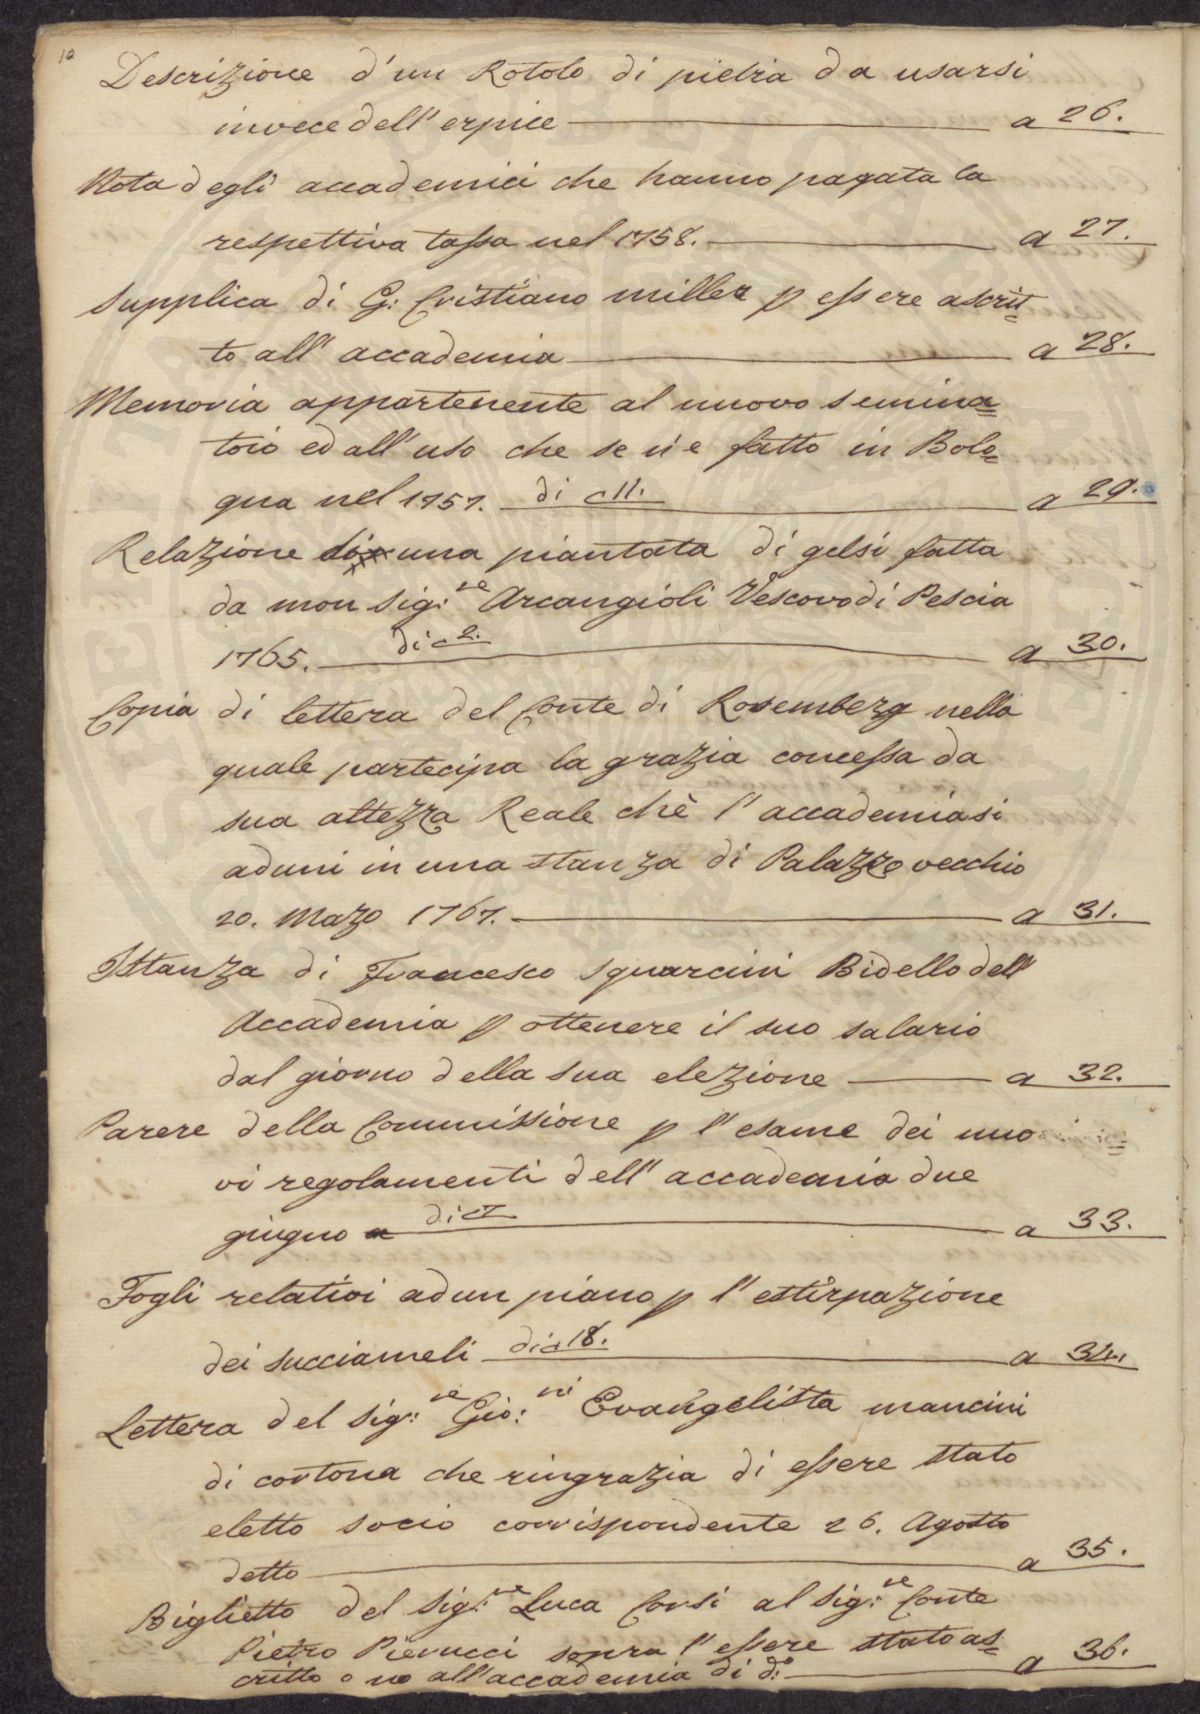 10
Descrizione d'un Rotolo di pietra da usarsi
invece dell'erpice a 26.
Nota degli accademici che hanno pagata la
respettiva tassa nel 1758. a 27.
Supplica di G: Cristiano miller p essere ascrit=
to all'accademia a 28.
Memoria appartenente al nuovo semina=
toio ed all'uso che se n'è fatto in Bolo=
gna nel 1757. di c 11. a 29.
Relazione di una piantata di gelsi fatta
da mon sig:re Arcangioli Vescovo di Pescia
1765. di c 2. a 30.
Copia di lettera del Conte di Rosemberg nella
quale partecipa la grazia concessa da
sua altezza Reale chè l'accademia si
aduni in una stanza di Palazzo vecchio
20. Mazo 1767. a 31.
Istanza di Francesco Squarcini Bidello dell'
Accademia p ottenere il suo salario
dal giorno della sua elezione a 32.
Parere della Commissione p l'esame dei nuo
vi regolamenti dell'accademia due
giugno di c a 33.
Fogli relativi ad un piano p l'estirpazione
dei succiameli di c 18. a 34.
Lettera del sig:re Gio:ni Evangelista mancini
di cortona che ringrazia di essere stato
eletto socio corrispondente 26. Agosto
detto a 35.
Biglietto del sig:re Luca Corsi al sig:re Conte
Pietro Pierucci sopra l'essere stato as=
critto o no all'accademia di d:o a 36.